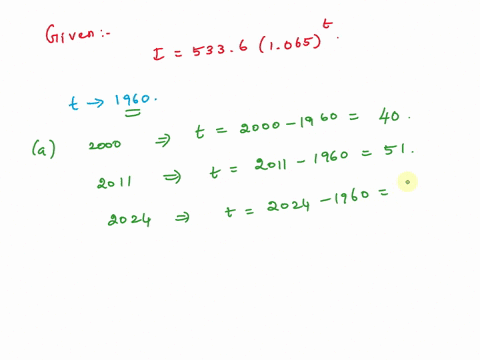 Given:-
I = 533.6 (1.065)^t.
t → 1960.
(a) 2000 ⇒ t = 2000 - 1960 = 40.
2011 ⇒ t = 2011 - 1960 = 51.
2024 ⇒ t = 2024 - 1960 =